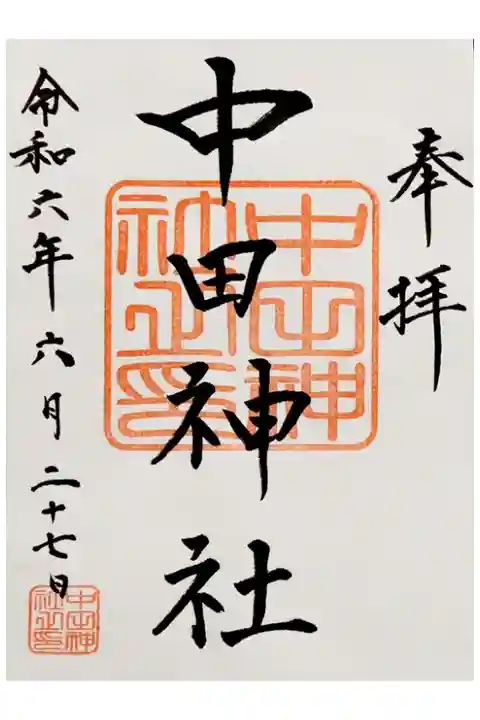 奉拝
中田神社
令和六年六月二十七日
中田神
社之印
中田神
社之印